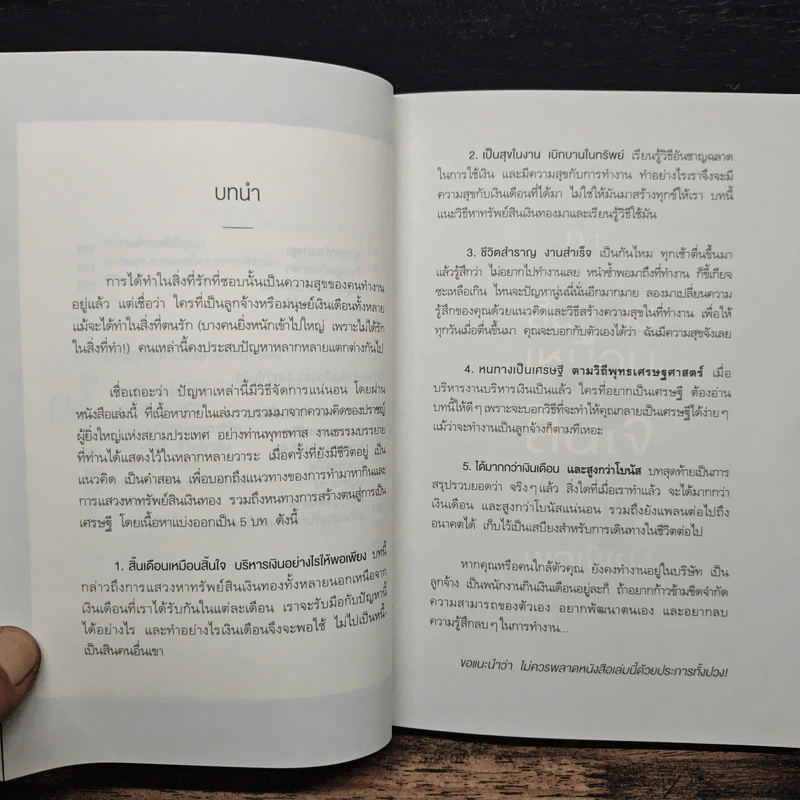 บทนำ
การได้ทำในสิ่งที่รักที่ชอบนั้นเป็นความสุขของคนทำงาน
อยู่แล้ว แต่เชื่อว่า ใครที่เป็นลูกจ้างหรือมนุษย์เงินเดือนทั้งหลาย
แม้จะได้ทำในสิ่งที่ตนรัก (บางคนยิ่งหนักเข้าไปใหญ่ เพราะไม่ได้รัก
ในสิ่งที่ทำ!) คนเหล่านี้คงประสบปัญหาหลากหลายแตกต่างกันไป
เชื่อเถอะว่า ปัญหาเหล่านี้มีวิธีจัดการแน่นอน โดยผ่าน
หนังสือเล่มนี้ ที่เนื้อหาภายในเล่มรวบรวมมาจากความคิดของปราชญ์
ผู้ยิ่งใหญ่แห่งสยามประเทศ อย่างท่านพุทธทาส งานธรรมบรรยาย
ที่ท่านได้แสดงไว้ในหลากหลายวาระ เมื่อครั้งที่ยังมีชีวิตอยู่ เป็น
แนวคิด เป็นคำสอน เพื่อบอกถึงแนวทางของการทำมาหากินและ
การแสวงหาทรัพย์สินเงินทอง รวมถึงหนทางการสร้างตนสู่การเป็น
เศรษฐี โดยเนื้อหาแบ่งออกเป็น 5 บท ดังนี้
1. สิ้นเดือนเหมือนสิ้นใจ บริหารเงินอย่างไรให้พอเพียง บทนี้
กล่าวถึงการแสวงหาทรัพย์สินเงินทองทั้งหลายนอกเหนือจาก
เงินเดือนที่เราได้รับกันในแต่ละเดือน เราจะรับมือกับปัญหานี้
ได้อย่างไร และทำอย่างไรเงินเดือนจึงจะพอใช้ ไม่ไปเป็นหนี้-
เป็นสินคนอื่นเขา
2. เป็นสุขในงาน เบิกบานในทรัพย์ เรียนรู้วิธีอันชาญฉลาด
ในการใช้เงิน และมีความสุขกับการทำงาน ทำอย่างไรเราจึงจะมี
ความสุขกับเงินเดือนที่ได้มา ไม่ใช่ให้มันมาสร้างทุกข์ให้เรา บทนี้
แนะวิธีหาทรัพย์สินเงินทองมาและเรียนรู้วิธีใช้มัน
3. ชีวิตสำราญ งานสำเร็จ เป็นกันไหม ทุกเช้าตื่นขึ้นมา
แล้วรู้สึกว่า ไม่อยากไปทำงานเลย หนำซ้ำพอมาถึงที่ทำงาน ก็ขี้เกียจ
ซะเหลือเกิน ไหนจะปัญหานู่นนี่นั่นอีกมากมาย ลองมาเปลี่ยนความ
รู้สึกของคุณด้วยแนวคิดและวิธีสร้างความสุขในที่ทำงาน เพื่อให้
ทุกวันเมื่อตื่นขึ้นมา คุณจะบอกกับตัวเองได้ว่า ฉันมีความสุขจังเลย
4. หนทางเป็นเศรษฐี ตามวิถีพุทธเศรษฐศาสตร์ เมื่อ
บริหารงานบริหารเงินเป็นแล้ว ใครที่อยากเป็นเศรษฐี ต้องอ่าน
บทนี้ให้ดีๆ เพราะจะบอกวิธีที่จะทำให้คุณกลายเป็นเศรษฐีได้ง่ายๆ
แม้ว่าจะทำงานเป็นลูกจ้างก็ตามทีเหอะ
5. ได้มากกว่าเงินเดือน และสูงกว่าโบนัส บทสุดท้ายเป็นการ
สรุปรวบยอดว่า จริงๆ แล้ว สิ่งใดที่เมื่อเราทำแล้ว จะได้มากกว่า
เงินเดือน และสูงกว่าโบนัสแน่นอน รวมถึงยังแพลนต่อไปถึง
อนาคตได้ เก็บไว้เป็นเสบียงสำหรับการเดินทางในชีวิตต่อไป
หากคุณหรือคนใกล้ตัวคุณ ยังคงทำงานอยู่ในบริษัท เป็น
ลูกจ้าง เป็นพนักงานกินเงินเดือนอยู่ละก็ ถ้าอยากก้าวข้ามขีดจำกัด
ความสามารถของตัวเอง อยากพัฒนาตนเอง และอยากลบ
ความรู้สึกลบๆ ในการทำงาน...
ขอแนะนำว่า ไม่ควรพลาดหนังสือเล่มนี้ด้วยประการทั้งปวง!